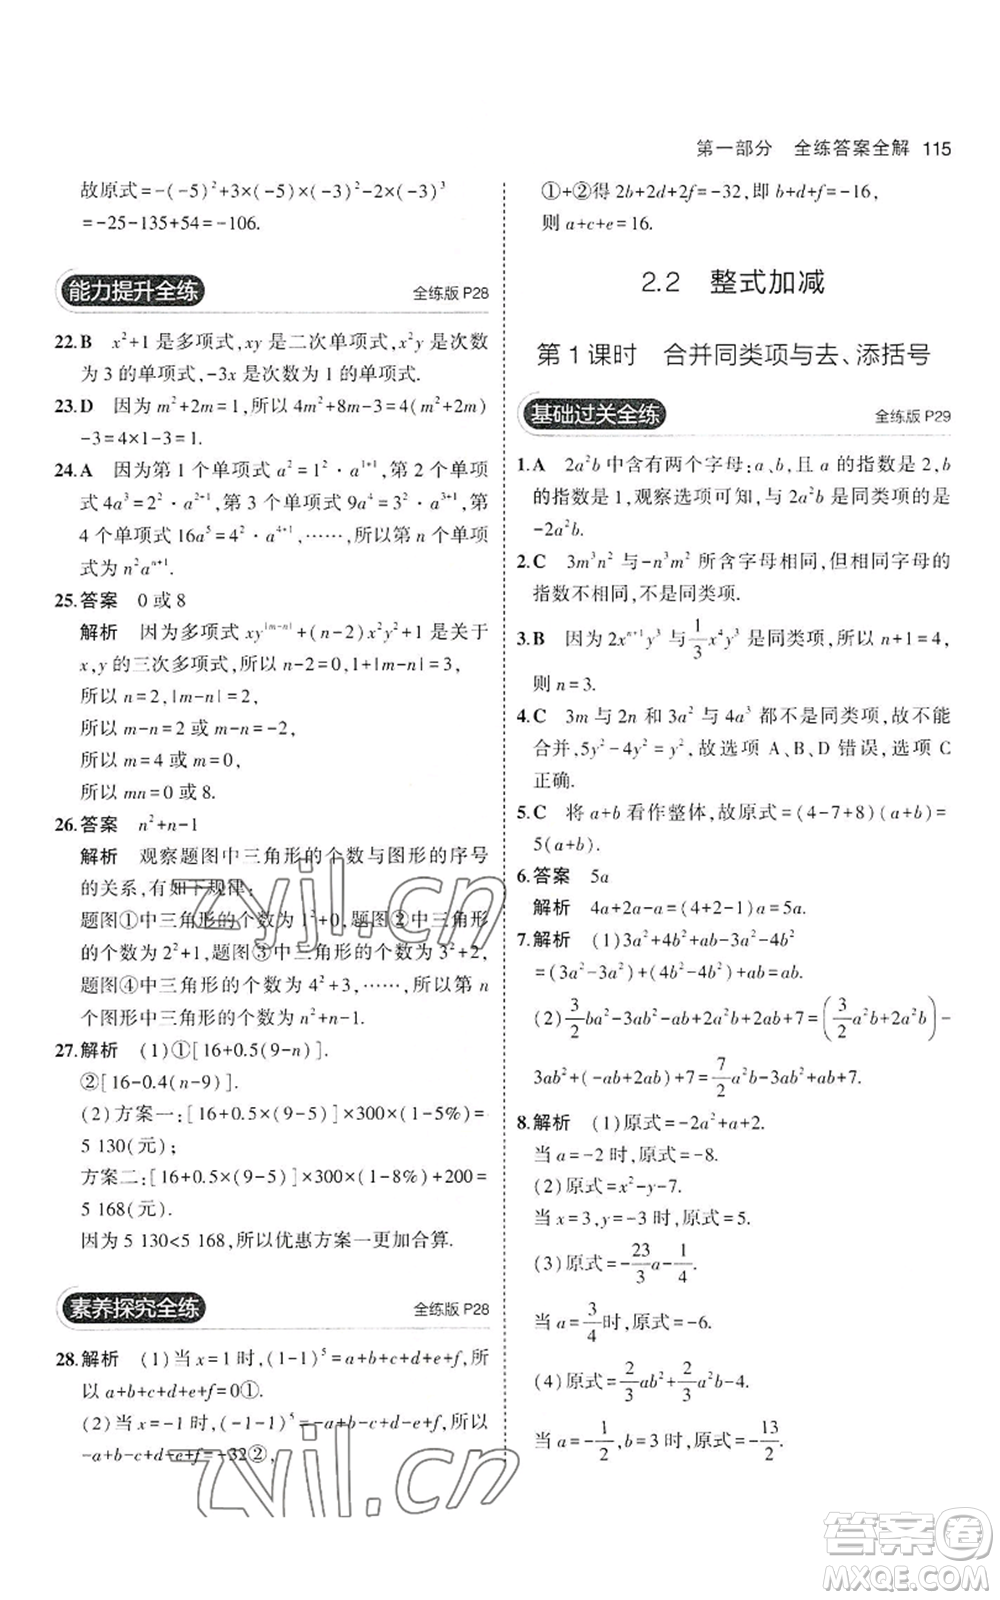 第一部分 全练答案全解 115
故原式=-(-5)²+3×(-5)×(-3)²-2×(-3)³
=-25-135+54=-106.
能力提升全练 全练版 P28
22.B x²+1 是多项式,xy 是二次单项式,x²y 是次数
为 3 的单项式,-3x 是次数为 1 的单项式.
23.D 因为 m²+2m=1,所以 4m²+8m-3=4(m²+2m)
-3=4×1-3=1.
24.A 因为第 1 个单项式 a²=1²·a¹⁺¹,第 2 个单项
式 4a³=2²·a²⁺¹,第 3 个单项式 9a⁴=3²·a³⁺¹,第
4 个单项式 16a⁵=4²·a⁴⁺¹,……,所以第 n 个单项
式为 n²aⁿ⁺¹.
25.答案 0 或 8
解析 因为多项式 xy^|m-n|+(n-2)x²y²+1 是关于
x,y 的三次多项式,所以 n-2=0,1+|m-n|=3,
所以 n=2,|m-n|=2,
所以 m-n=2 或 m-n=-2,
所以 m=4 或 m=0,
所以 mn=0 或 8.
26.答案 n²+n-1
解析 观察题图中三角形的个数与图形的序号
的关系,有如下规律:
题图①中三角形的个数为 1²+0,题图②中三角形
的个数为 2²+1,题图③中三角形的个数为 3²+2,
题图④中三角形的个数为 4²+3,……,所以第 n
个图形中三角形的个数为 n²+n-1.
27.解析 (1)①[16+0.5(9-n)].
②[16-0.4(n-9)].
(2)方案一:[16+0.5×(9-5)]×300×(1-5%)=
5 130(元);
方案二:[16+0.5×(9-5)]×300×(1-8%)+200=
5 168(元).
因为 5 130<5 168,所以优惠方案一更加合算.
素养探究全练 全练版 P28
28.解析 (1)当 x=1 时,(1-1)⁵=a+b+c+d+e+f,所
以 a+b+c+d+e+f=0①.
(2)当 x=-1 时,(-1-1)⁵=-a+b-c+d-e+f,所以
-a+b-c+d-e+f=-32②,
①+②得 2b+2d+2f=-32,即 b+d+f=-16,
则 a+c+e=16.
2.2 整式加减
第 1 课时 合并同类项与去、添括号
基础过关全练 全练版 P29
1.A 2a²b 中含有两个字母:a、b,且 a 的指数是 2,b
的指数是 1,观察选项可知,与 2a²b 是同类项的是
-2a²b.
2.C 3m³n² 与-n³m² 所含字母相同,但相同字母的
指数不相同,不是同类项.
3.B 因为 2xⁿ⁺¹y³ 与 1/3 x⁴y³ 是同类项,所以 n+1=4,
则 n=3.
4.C 3m 与 2n 和 3a² 与 4a³ 都不是同类项,故不能
合并,5y²-4y²=y²,故选项 A、B、D 错误,选项 C
正确.
5.C 将 a+b 看作整体,故原式=(4-7+8)(a+b)=
5(a+b).
6.答案 5a
解析 4a+2a-a=(4+2-1)a=5a.
7.解析 (1)3a²+4b²+ab-3a²-4b²
=(3a²-3a²)+(4b²-4b²)+ab=ab.
(2)3/2 ba²-3ab²-ab+2a²b+2ab+7=(3/2 a²b+2a²b)-
3ab²+(-ab+2ab)+7=7/2 a²b-3ab²+ab+7.
8.解析 (1)原式=-2a²+a+2.
当 a=-2 时,原式=-8.
(2)原式=x²-y-7.
当 x=3,y=-3 时,原式=5.
(3)原式=-23/3 a-1/4.
当 a=3/4 时,原式=-6.
(4)原式=2/3 ab²+2/3 a²b-4.
当 a=-1/2,b=3 时,原式=-13/2.
zyjl.cn
zyjl.cn
答案卷
MXQE.COM